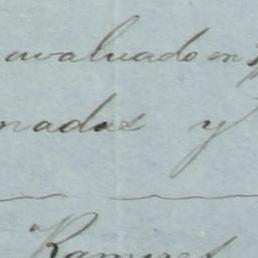 avaluado en
nadas y
Ramires